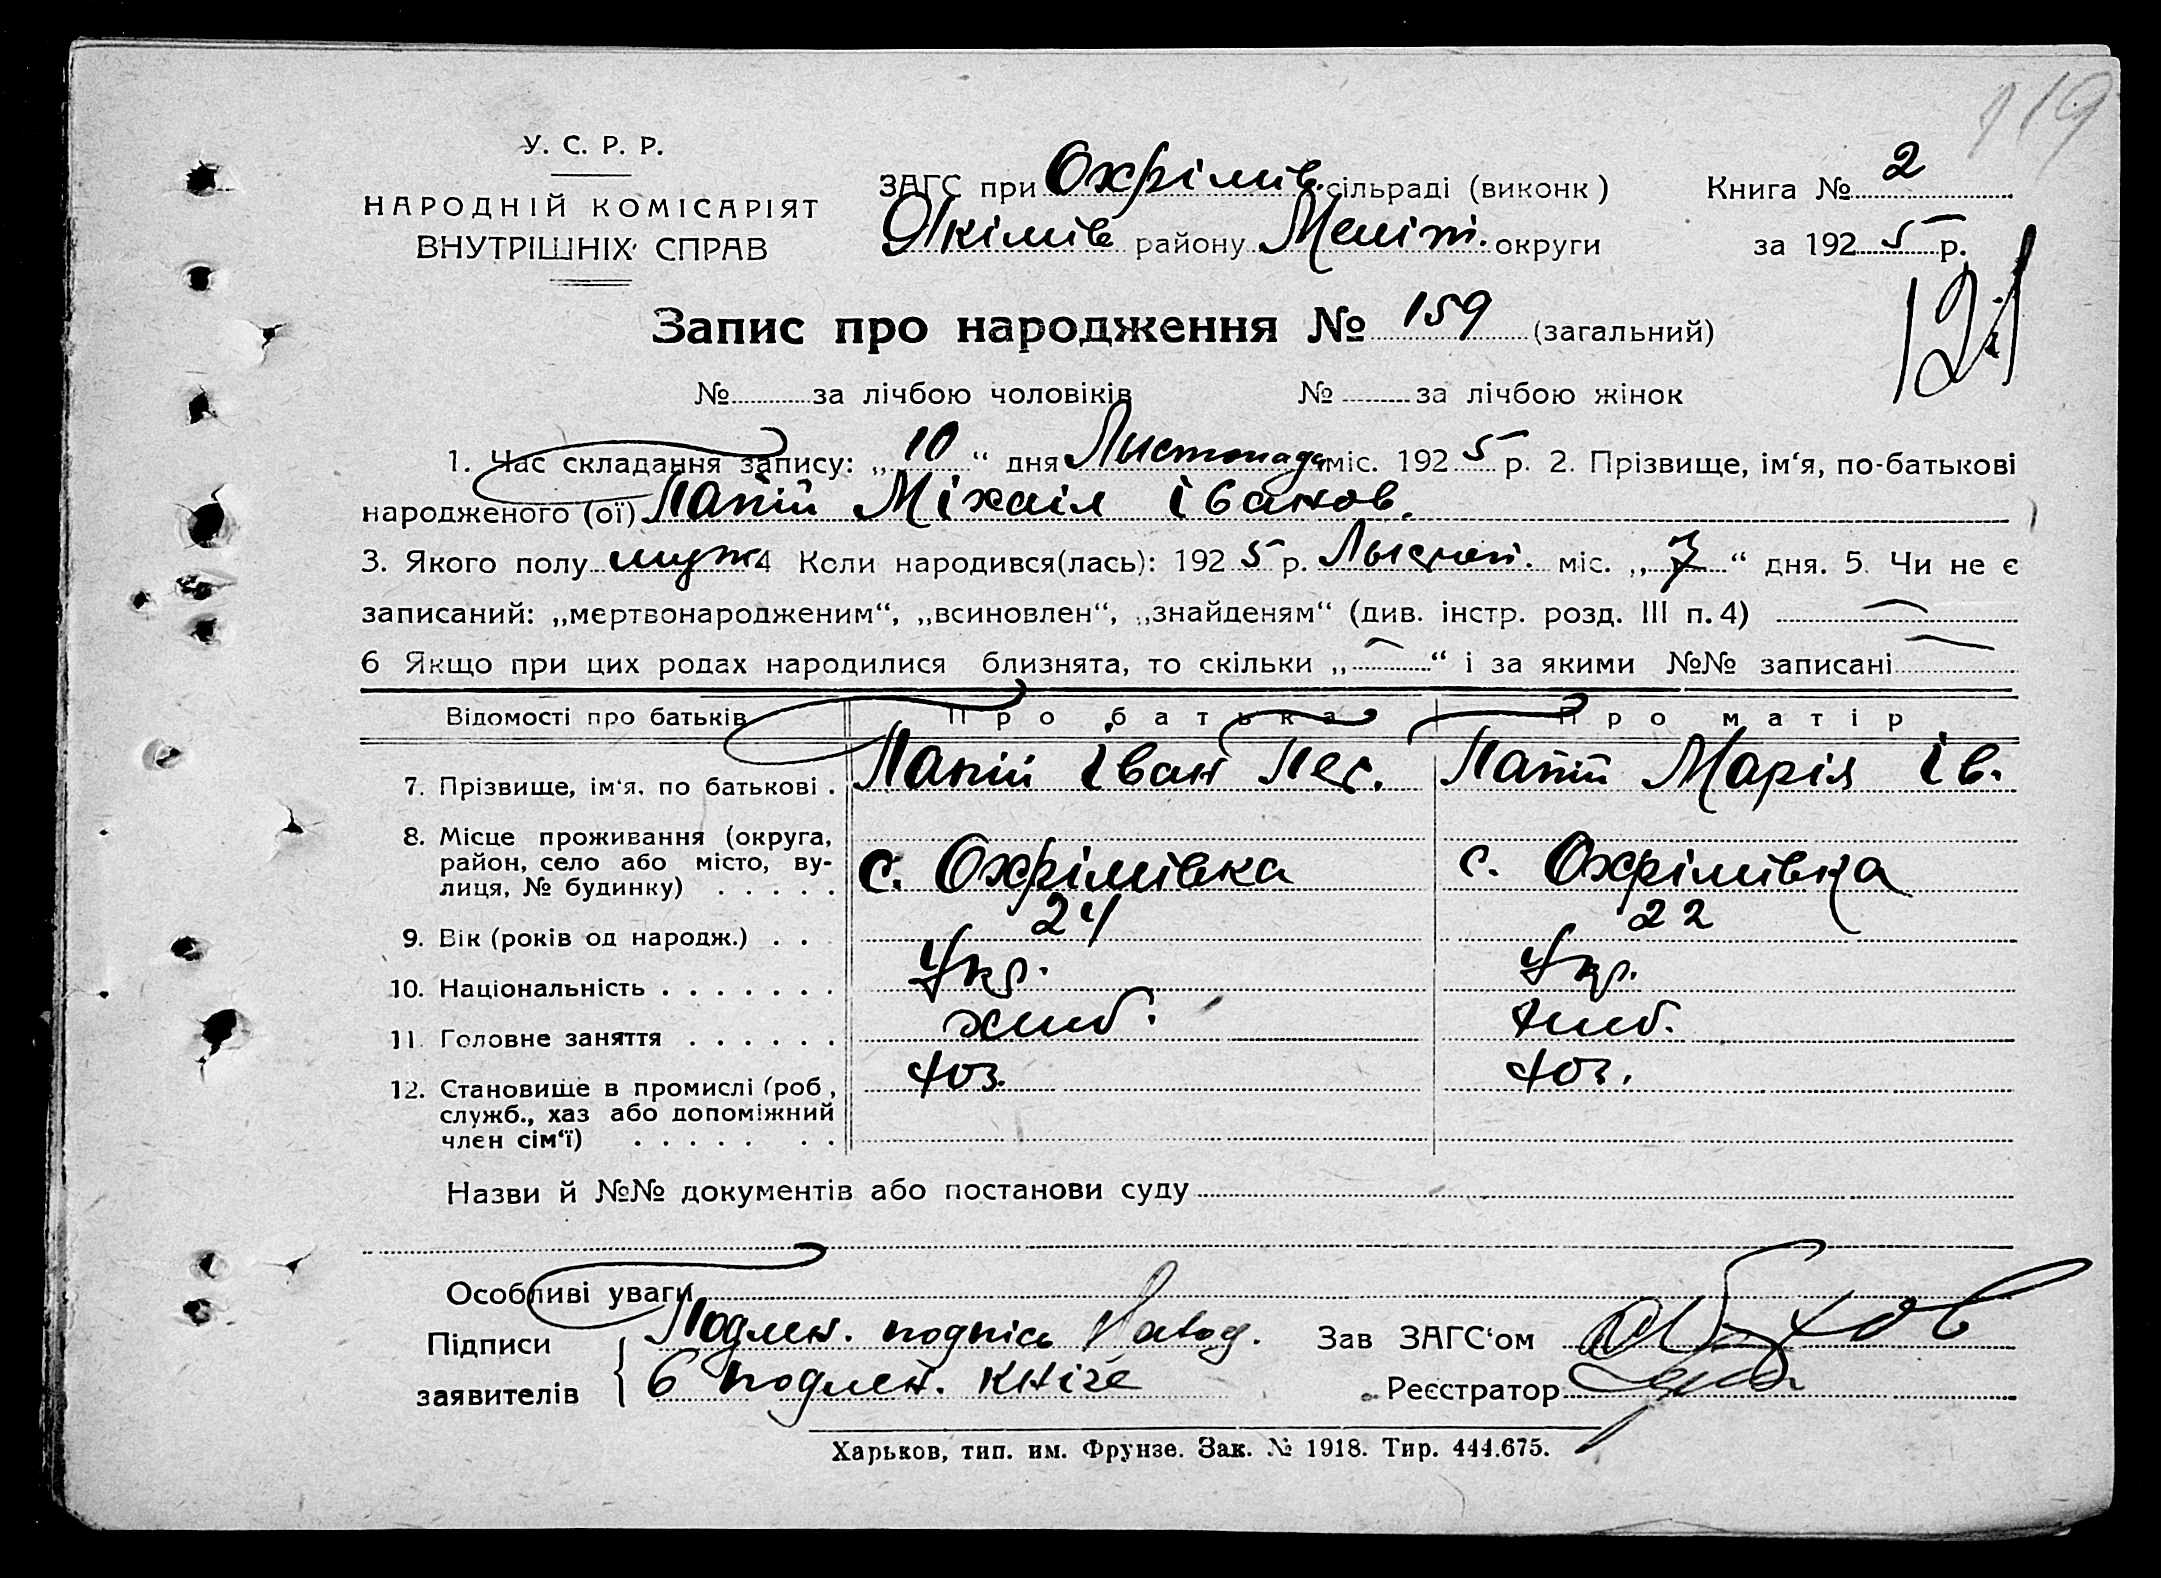 119
У. С. Р. Р.
НАРОДНІЙ КОМІСАРІЯТ
ВНУТРІШНІХ СПРАВ
ЗАГС при Охрімів. сільраді (виконк)
Якімів району Меліт. округи
Книга № 2
за 1925 р.
121
Запис про народження № 159 (загальний)
№ за лічбою чоловіків № за лічбою жінок
1. Час складання запису: „10“ дня Листопада міс. 1925 р. 2. Прізвище, ім‘я, по-батькові
народженого (ої) Папій Міхаіл Іванов.
3. Якого полу муж 4 Коли народився(лась): 1925 р. міс. „7“ дня. 5. Чи не є
записаний: „мертвонародженим“, „всиновлен“, „знайденям“ (див. інстр. розд. III п. 4)
6 Якщо при цих родах народилися близнята, то скільки „ “ і за якими №№ записані
Відомості про батьків Про батька Про матір
7. Прізвище, ім‘я, по батькові . Папій Іван Папій Марія Ів.
8. Місце проживання (округа,
район, село або місто, ву-
лиця, № будинку) . . . . . с. Охрімівка с. Охрімівка
9. Вік (років од народж.) . . 24 22
10. Національність . . . . . . . Укр. Укр.
11. Головне заняття . . . . . . хліб. хліб.
12. Становище в промислі (роб,
служб., хаз або допоміжний
член сім‘ї) . . . . . . . хоз. хоз.
Назви й №№ документів або постанови суду
Особливі уваги
Підписи
заявителів
Подлен. подпісь
в подлен. кнізе
Зав ЗАГС‘ом
Реєстратор
Харьков, тип. им. Фрунзе. Зак. № 1918. Тир. 444.675.